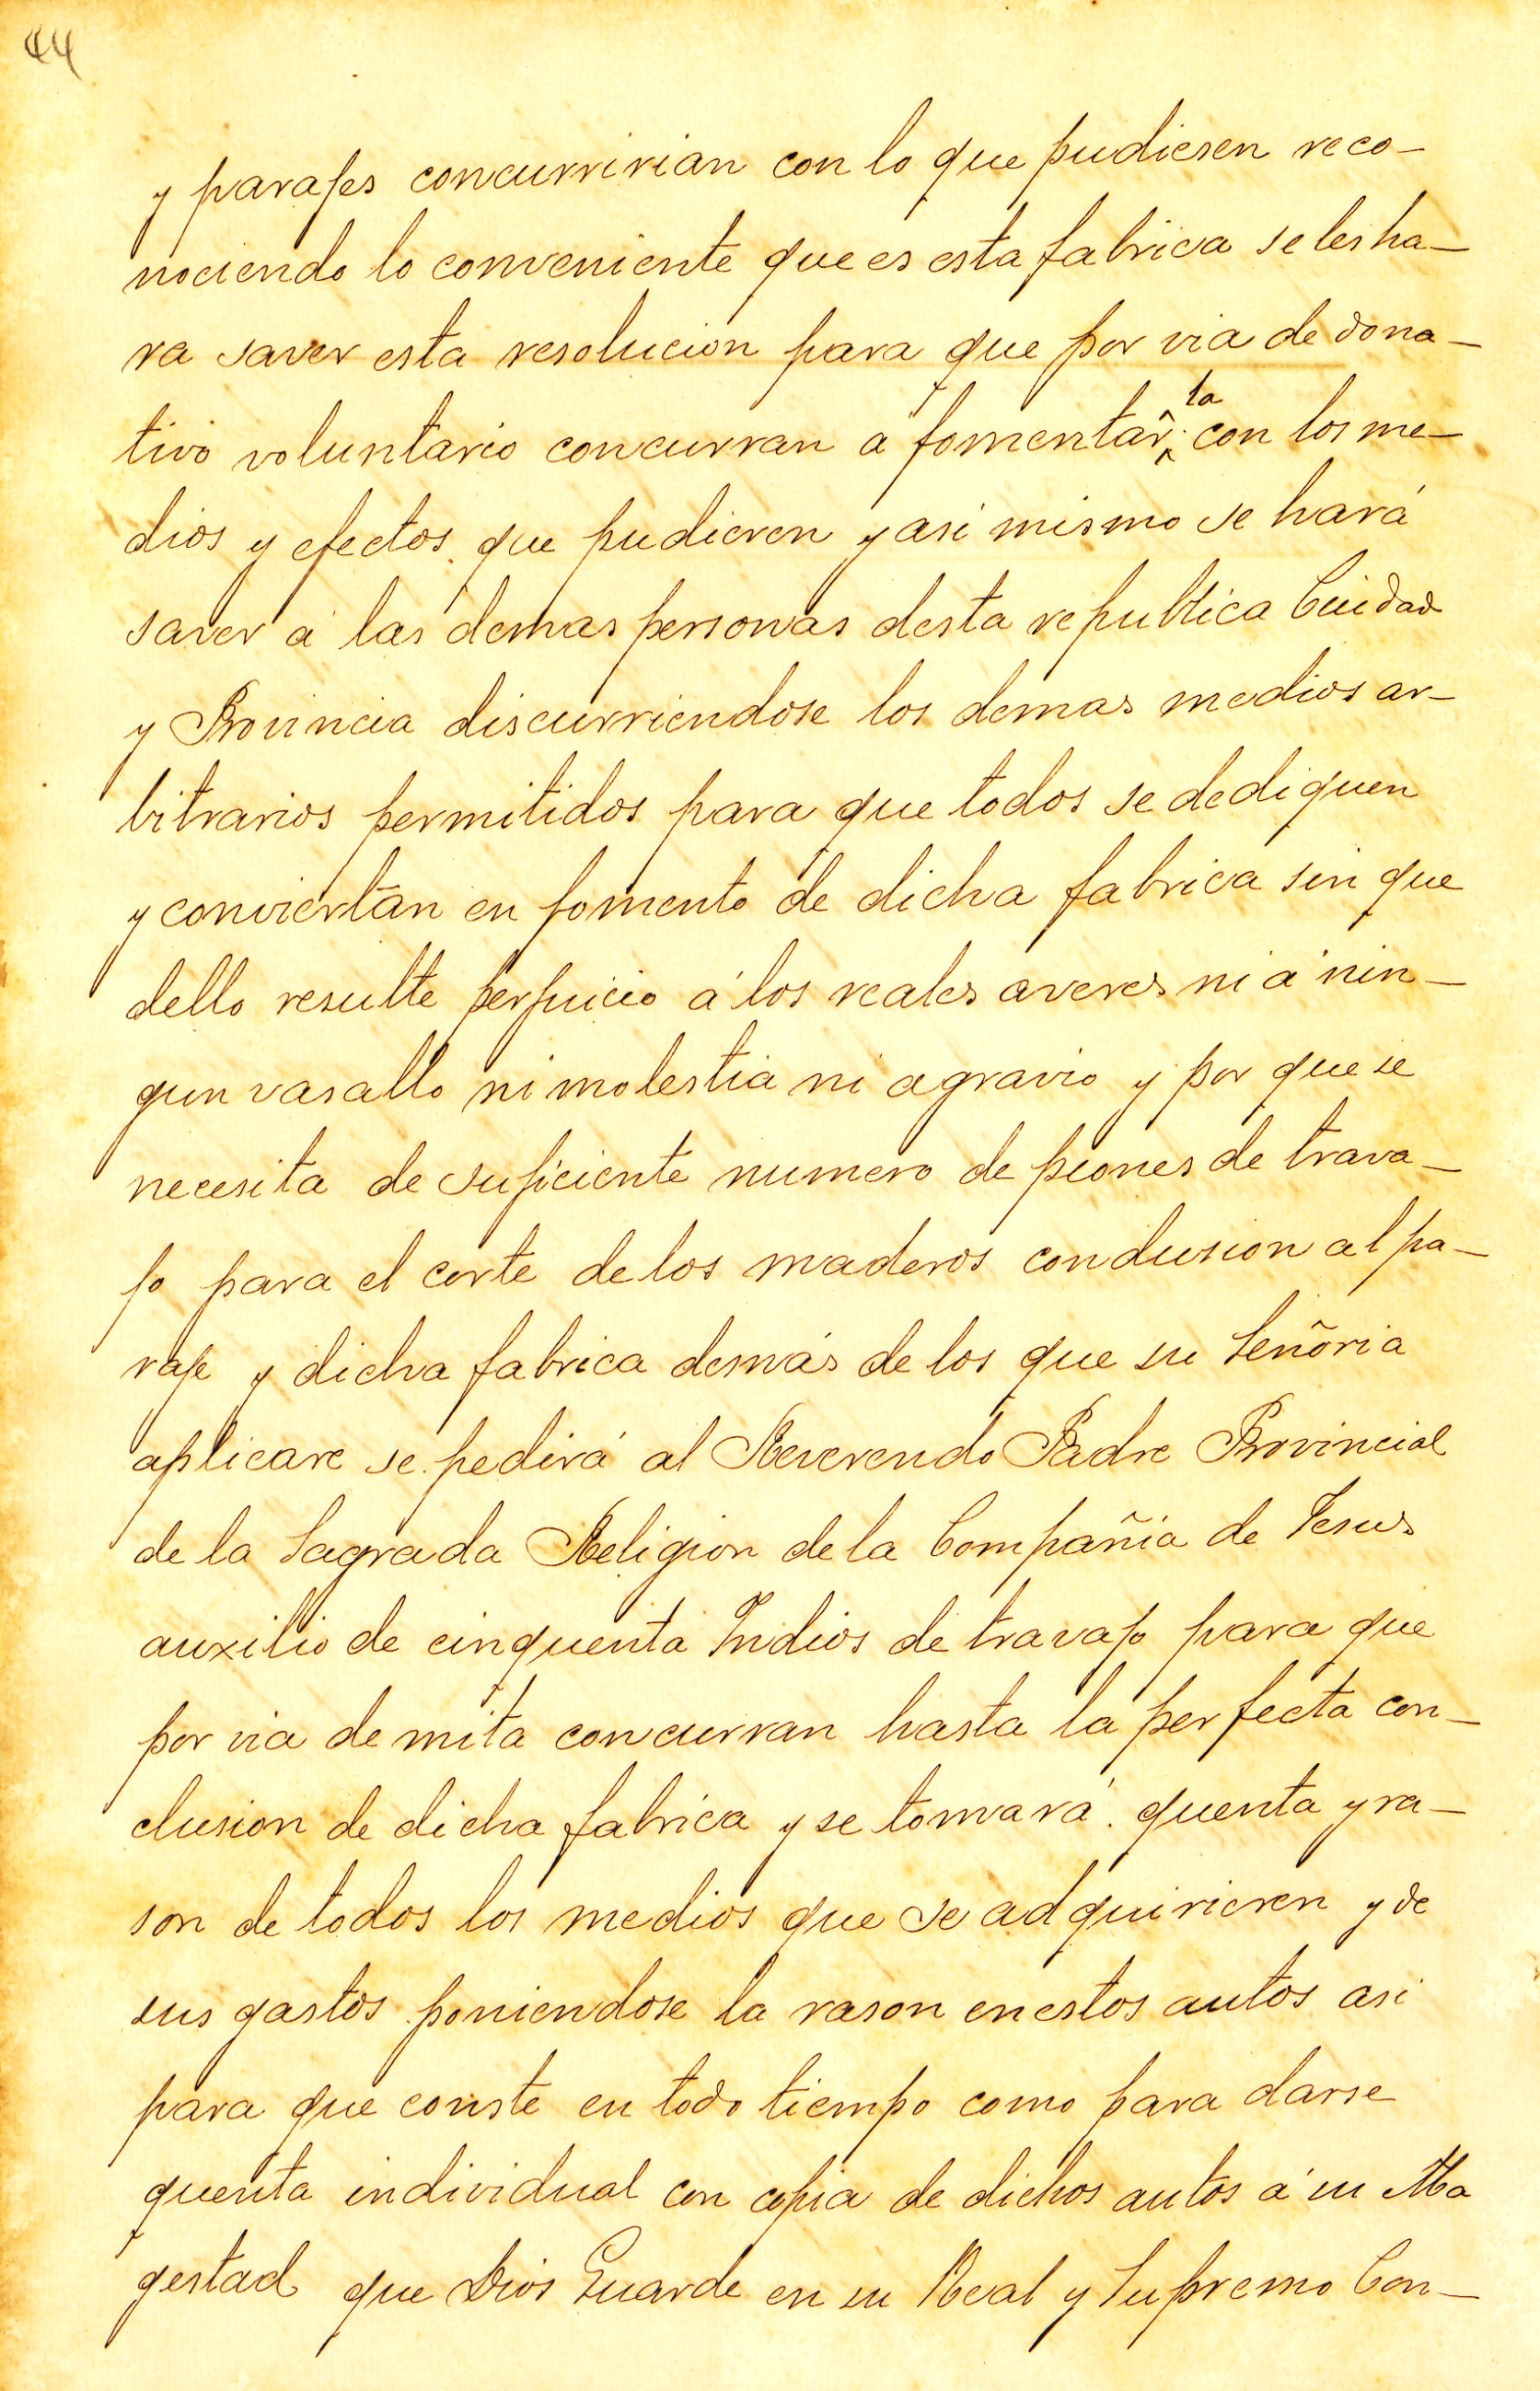 44
y parajes concurririan con lo que pudiesen reco-
nociendo lo conveniente que es esta fabrica se les ha-
ra saver esta resolucion para que por via de dona-
tivo voluntario concurran á fomentar la con los me-
dios y efectos que pudieren y asi mismo se hará
saver á las demas personas desta republica Ciudad
y Provincia discurriendose los demas medios ar-
bitrarios permitidos para que todos se dediquen
y conviertan en fomento de dicha fabrica sin que
dello resulte perjuicio á los reales averes ni á nin-
gun vasallo ni molestia ni agravio y por que se
necesita de suficiente numero de peones de trava-
jo para el corte de los maderos condusion al pa-
raje y dicha fabrica demás de los que su Señoria
aplicare se pedirá al Reverendo Padre Provincial
de la Sagrada Religion de la Compañia de Jesus
auxilio de cinquenta Indios de travajo para que
por via de mita concurran hasta la perfecta con-
clusion de dicha fabrica y se tomará quenta y ra-
son de todos los medios que se adquirieren y de
sus gastos poniendose la rason en estos autos asi
para que conste en todo tiempo como para darse
quenta individual con copia de dichos autos á su Ma
gestad que Dios Guarde en su Real y Supremo Con-